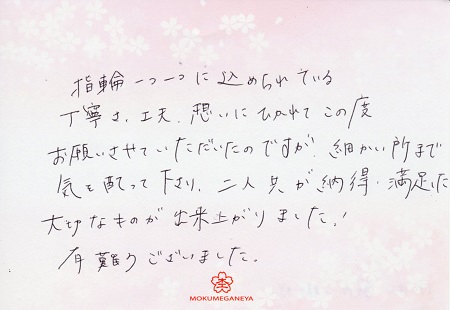 指輪一つ一つに込められている
丁寧さ、工夫、想いにひかれてこの度
お願いさせていただいたのですが、細かい所まで
気を配って下さり、二人共が納得・満足した
大切なものが出来上がりました！
有難うございました。
杢
MOKUMEGANEYA